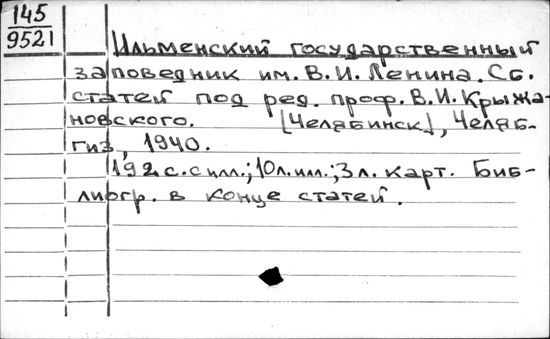 145
9521
Ильменский государственный
заповедник им. В. И. Ленина. Сб.
статей под ред. проф. В. И. Крыжа-
новского. [Челябинск], Челяб-
гиз, 1940.
192 с. с илл.; 10 л. илл.; 3 л. карт. Биб-
лиогр. в конце статей.